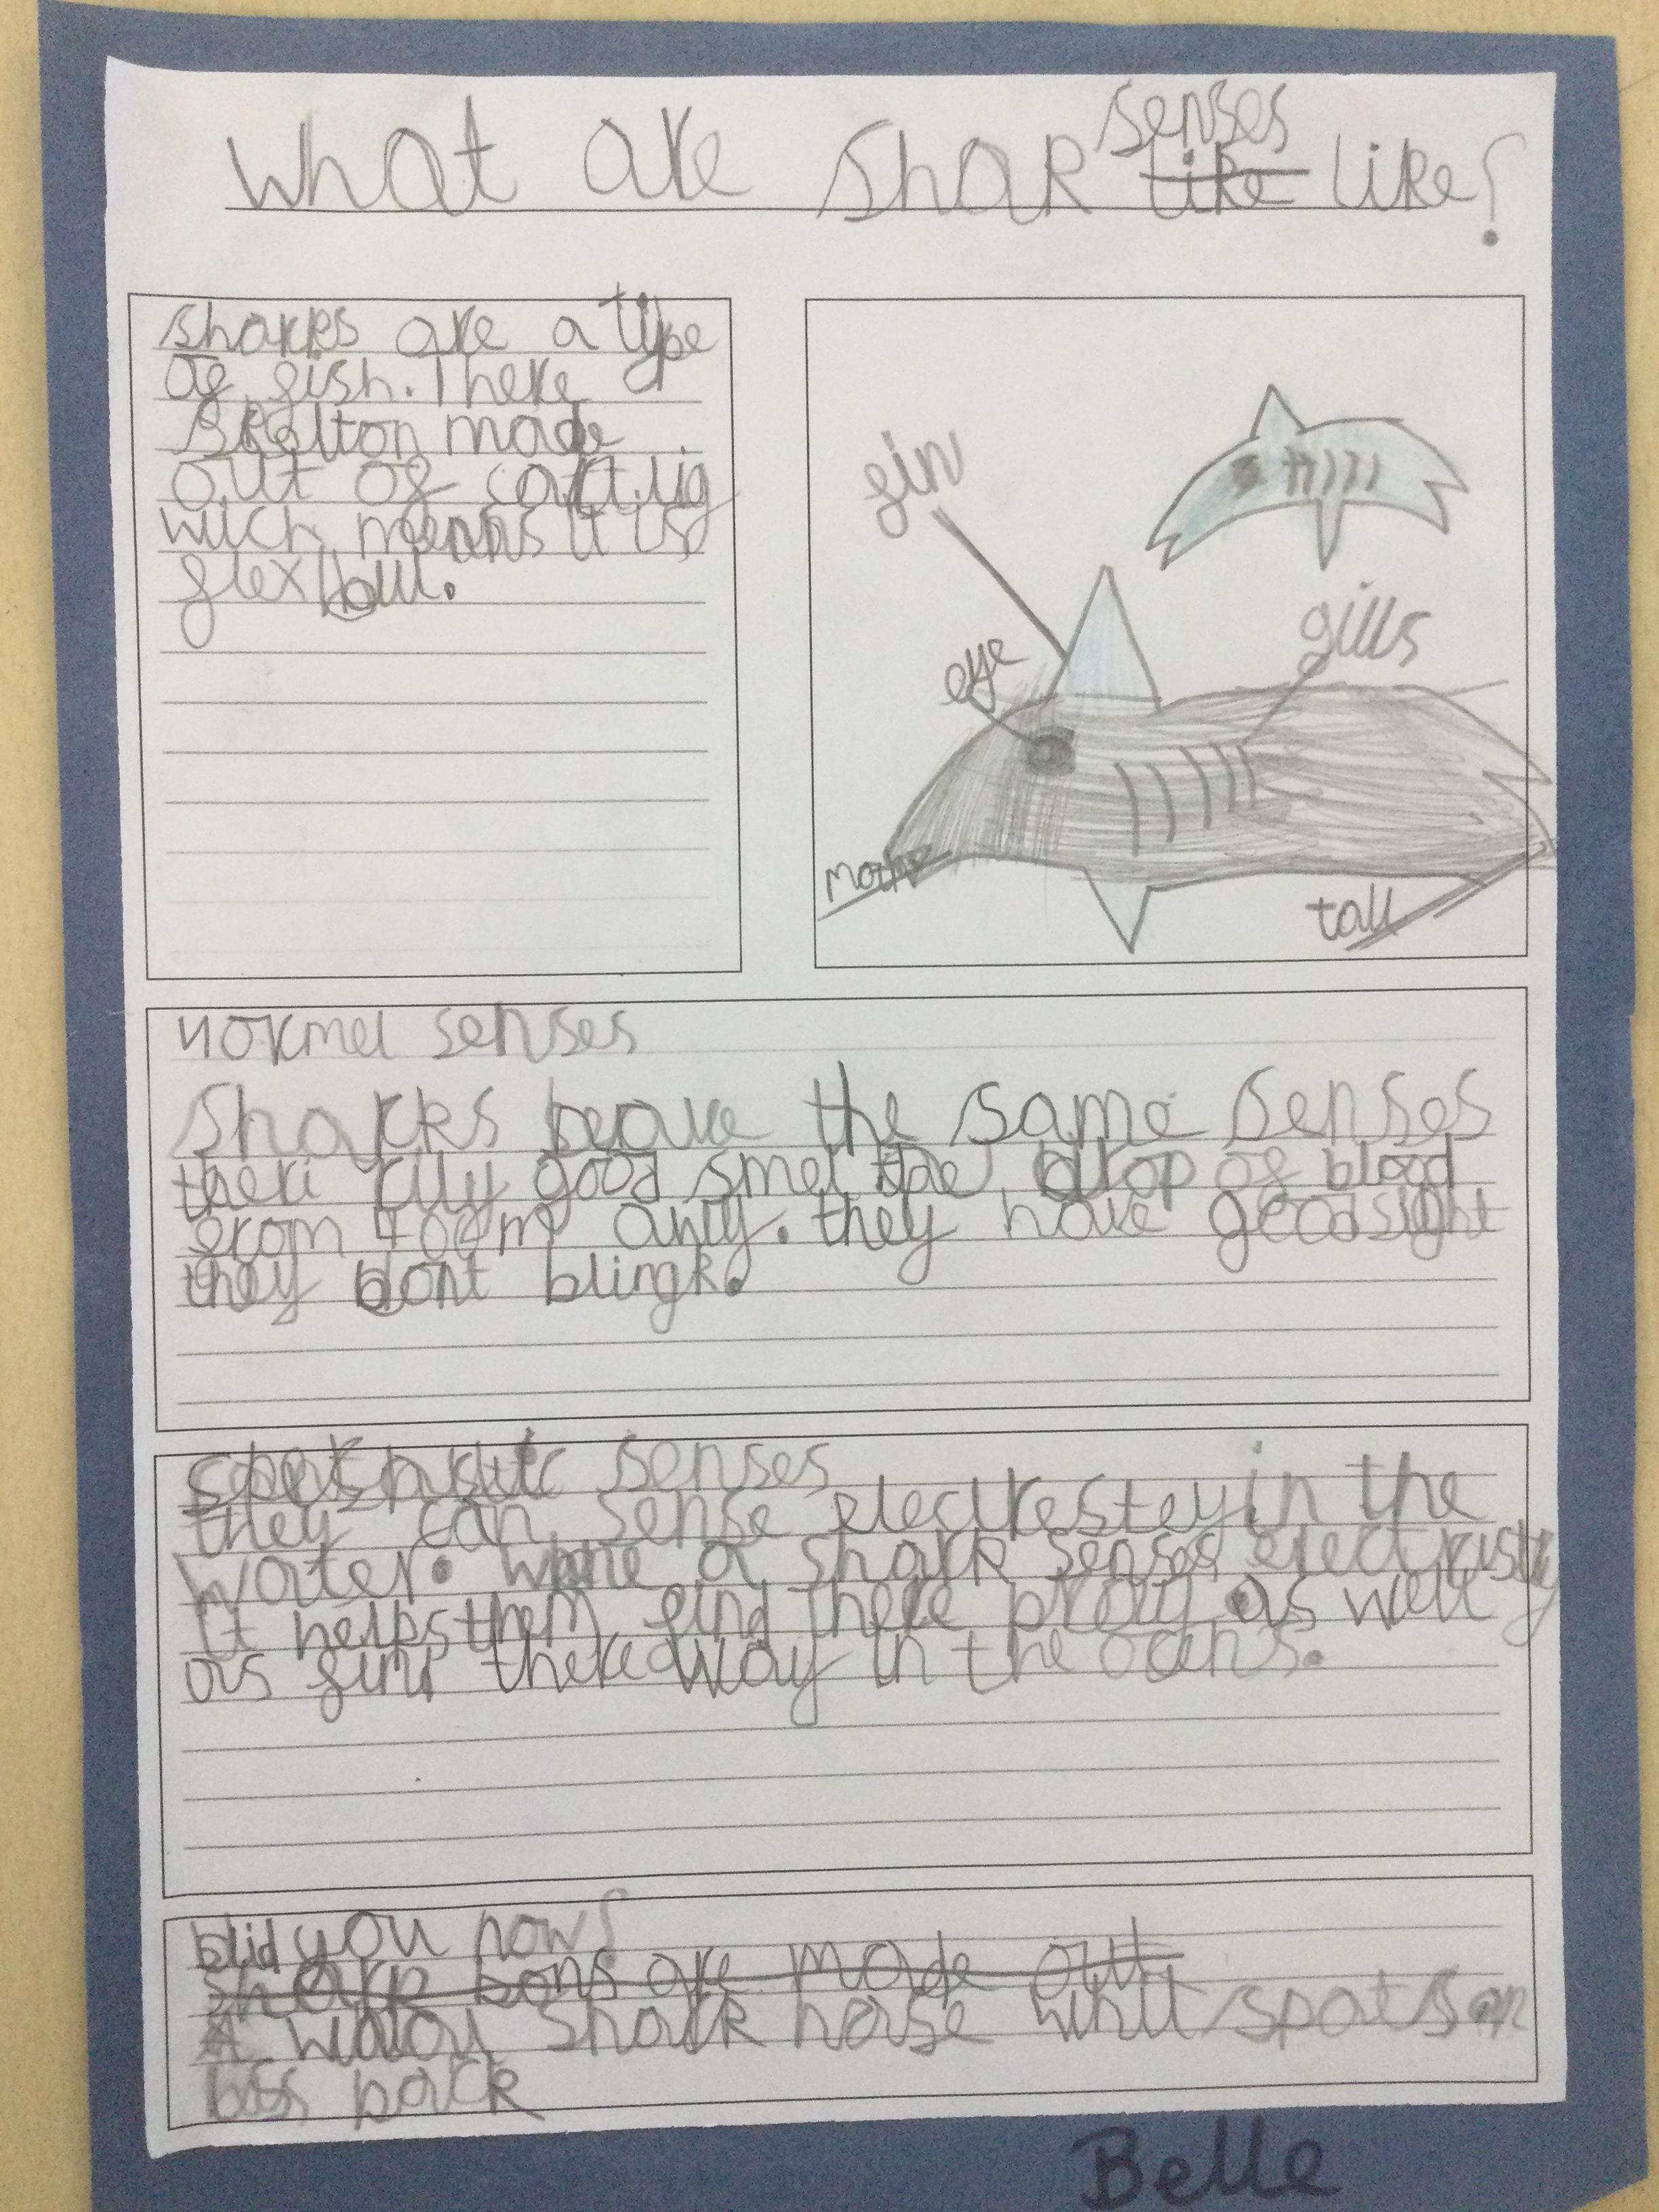 What are shar senses
like like?
sharks are a type
of fish. There
skelton made
out of cartlig
wich means it is
flexibul.
fin
eye
gills
tail
normel senses
Sharks have the same senses
there rlly good smel the drop of blood
from 400m away. they have good sight
they dont blingk.
senses
they can sense electrestey in the
water. wene a shark senses electristy
it helps them find there pray as well
as find there way in the ocens.
did you now?
shark bons are made out
A walal shark hase whit spots on
his back
Belle